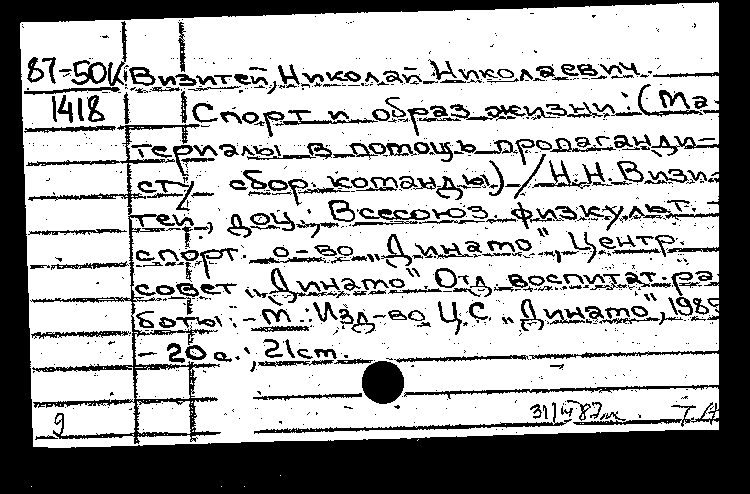 87-50К Визитей, Николай Николаевич.
1418 Спорт и образ жизни: (Ма-
териалы в помощь пропаганди-
сту сбор. команды) / Н.Н. Визи-
тей, доц.; Всесоюз. физкульт.-
спорт. о-во „Динамо", Центр.
совет „Динамо". Отд. воспитат. ра
боты. - М.: Изд-во ЦС „Динамо", 1985
- 20 с.; 21 см.
9 31/III 87